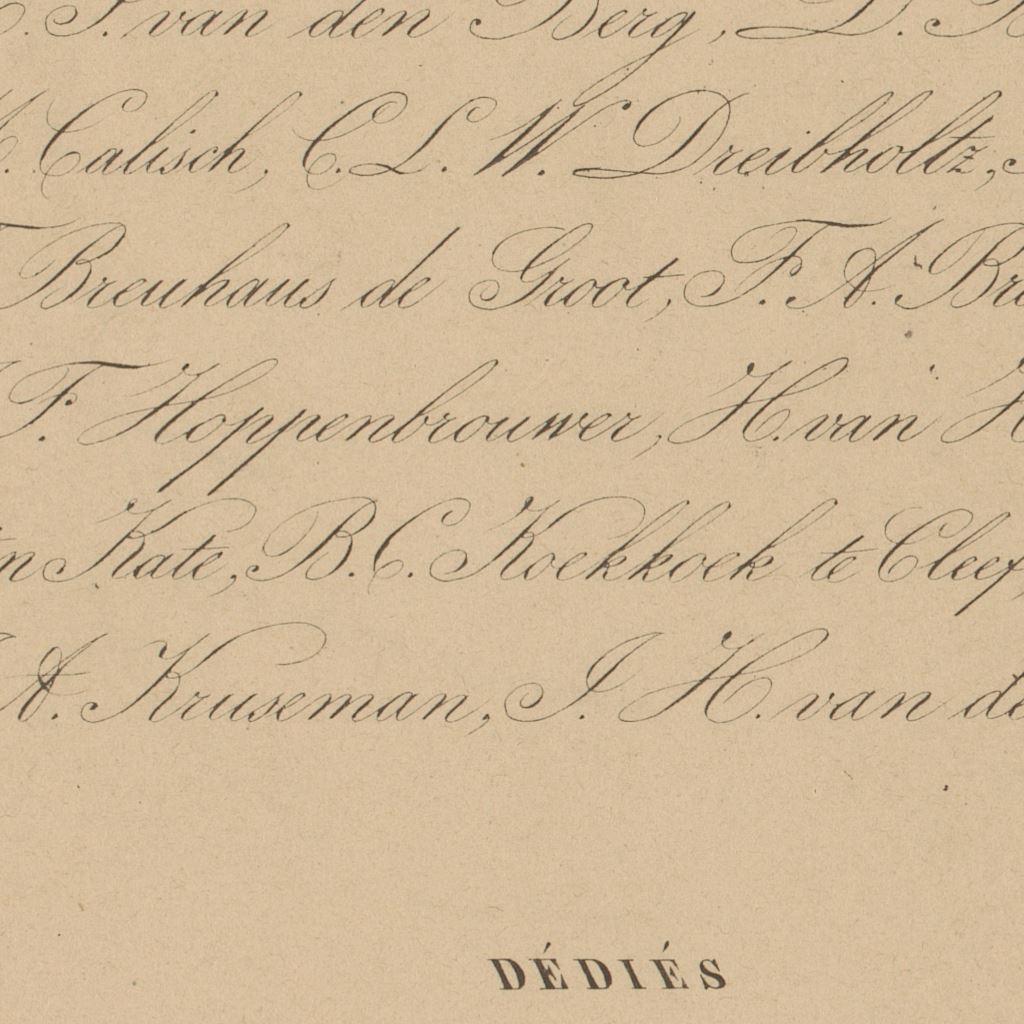 van den Berg, D.
Calisch, C. L. W. Dreibholtz,
Breuhaus de Groot, F. A. Br
F. Hoppenbrouwer, H. van H
Kate, B. C. Koekkoek te Cleef,
A. Kruseman, J. H. van de
DÉDIÉS